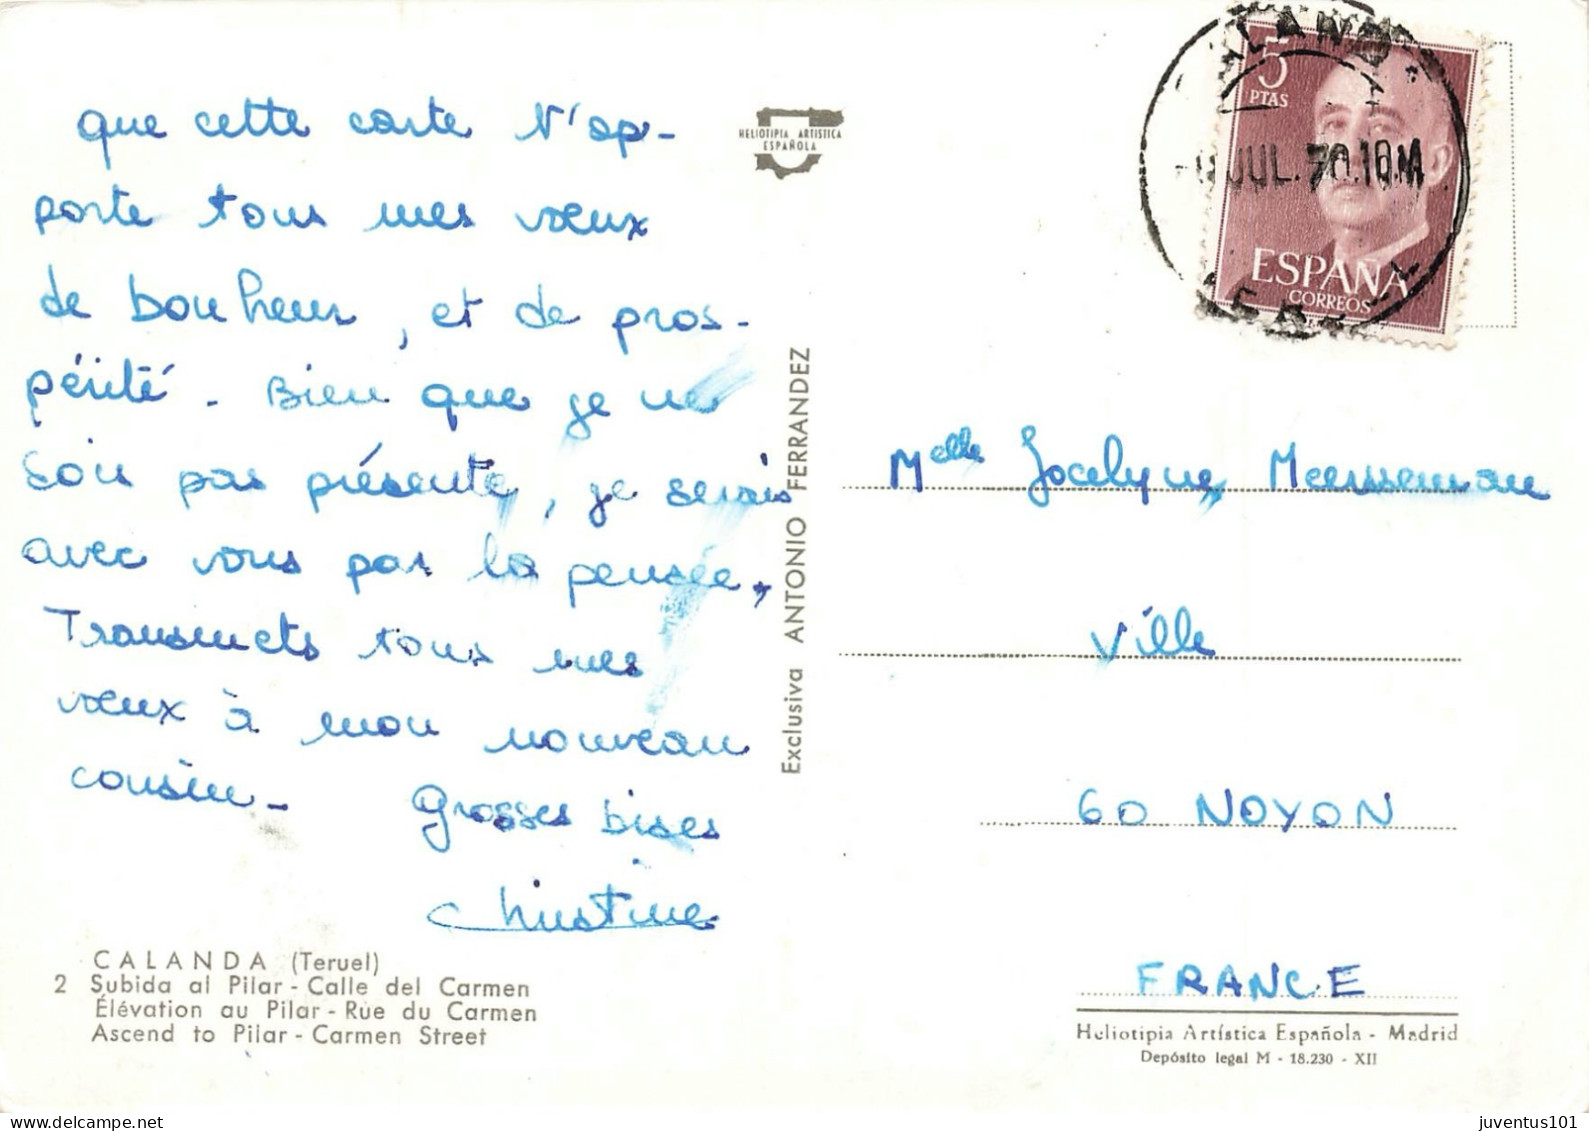 que cette carte t'ap-
porte tous mes vœux
de bonheur, et de pros-
périté. Bien que je ne
sois pas présente, je serais
avec vous par la pensée.
Transmets tous mes
vœux à mon nouveau
cousin.
Grosses bises
Christine
CALANDA (Teruel)
2 Subida al Pilar - Calle del Carmen
Élévation au Pilar - Rue du Carmen
Ascend to Pilar - Carmen Street
HELIOTIPIA ARTISTICA
ESPAÑOLA
Exclusiva ANTONIO FERRANDEZ
5
PTAS
JUL. 70.10M
ESPAÑA
CORREOS
Melle Jocelyne Meersseman
Ville
60 NOYON
FRANCE
Heliotipia Artística Española - Madrid
Depósito legal M - 18.230 - XII
juventus101